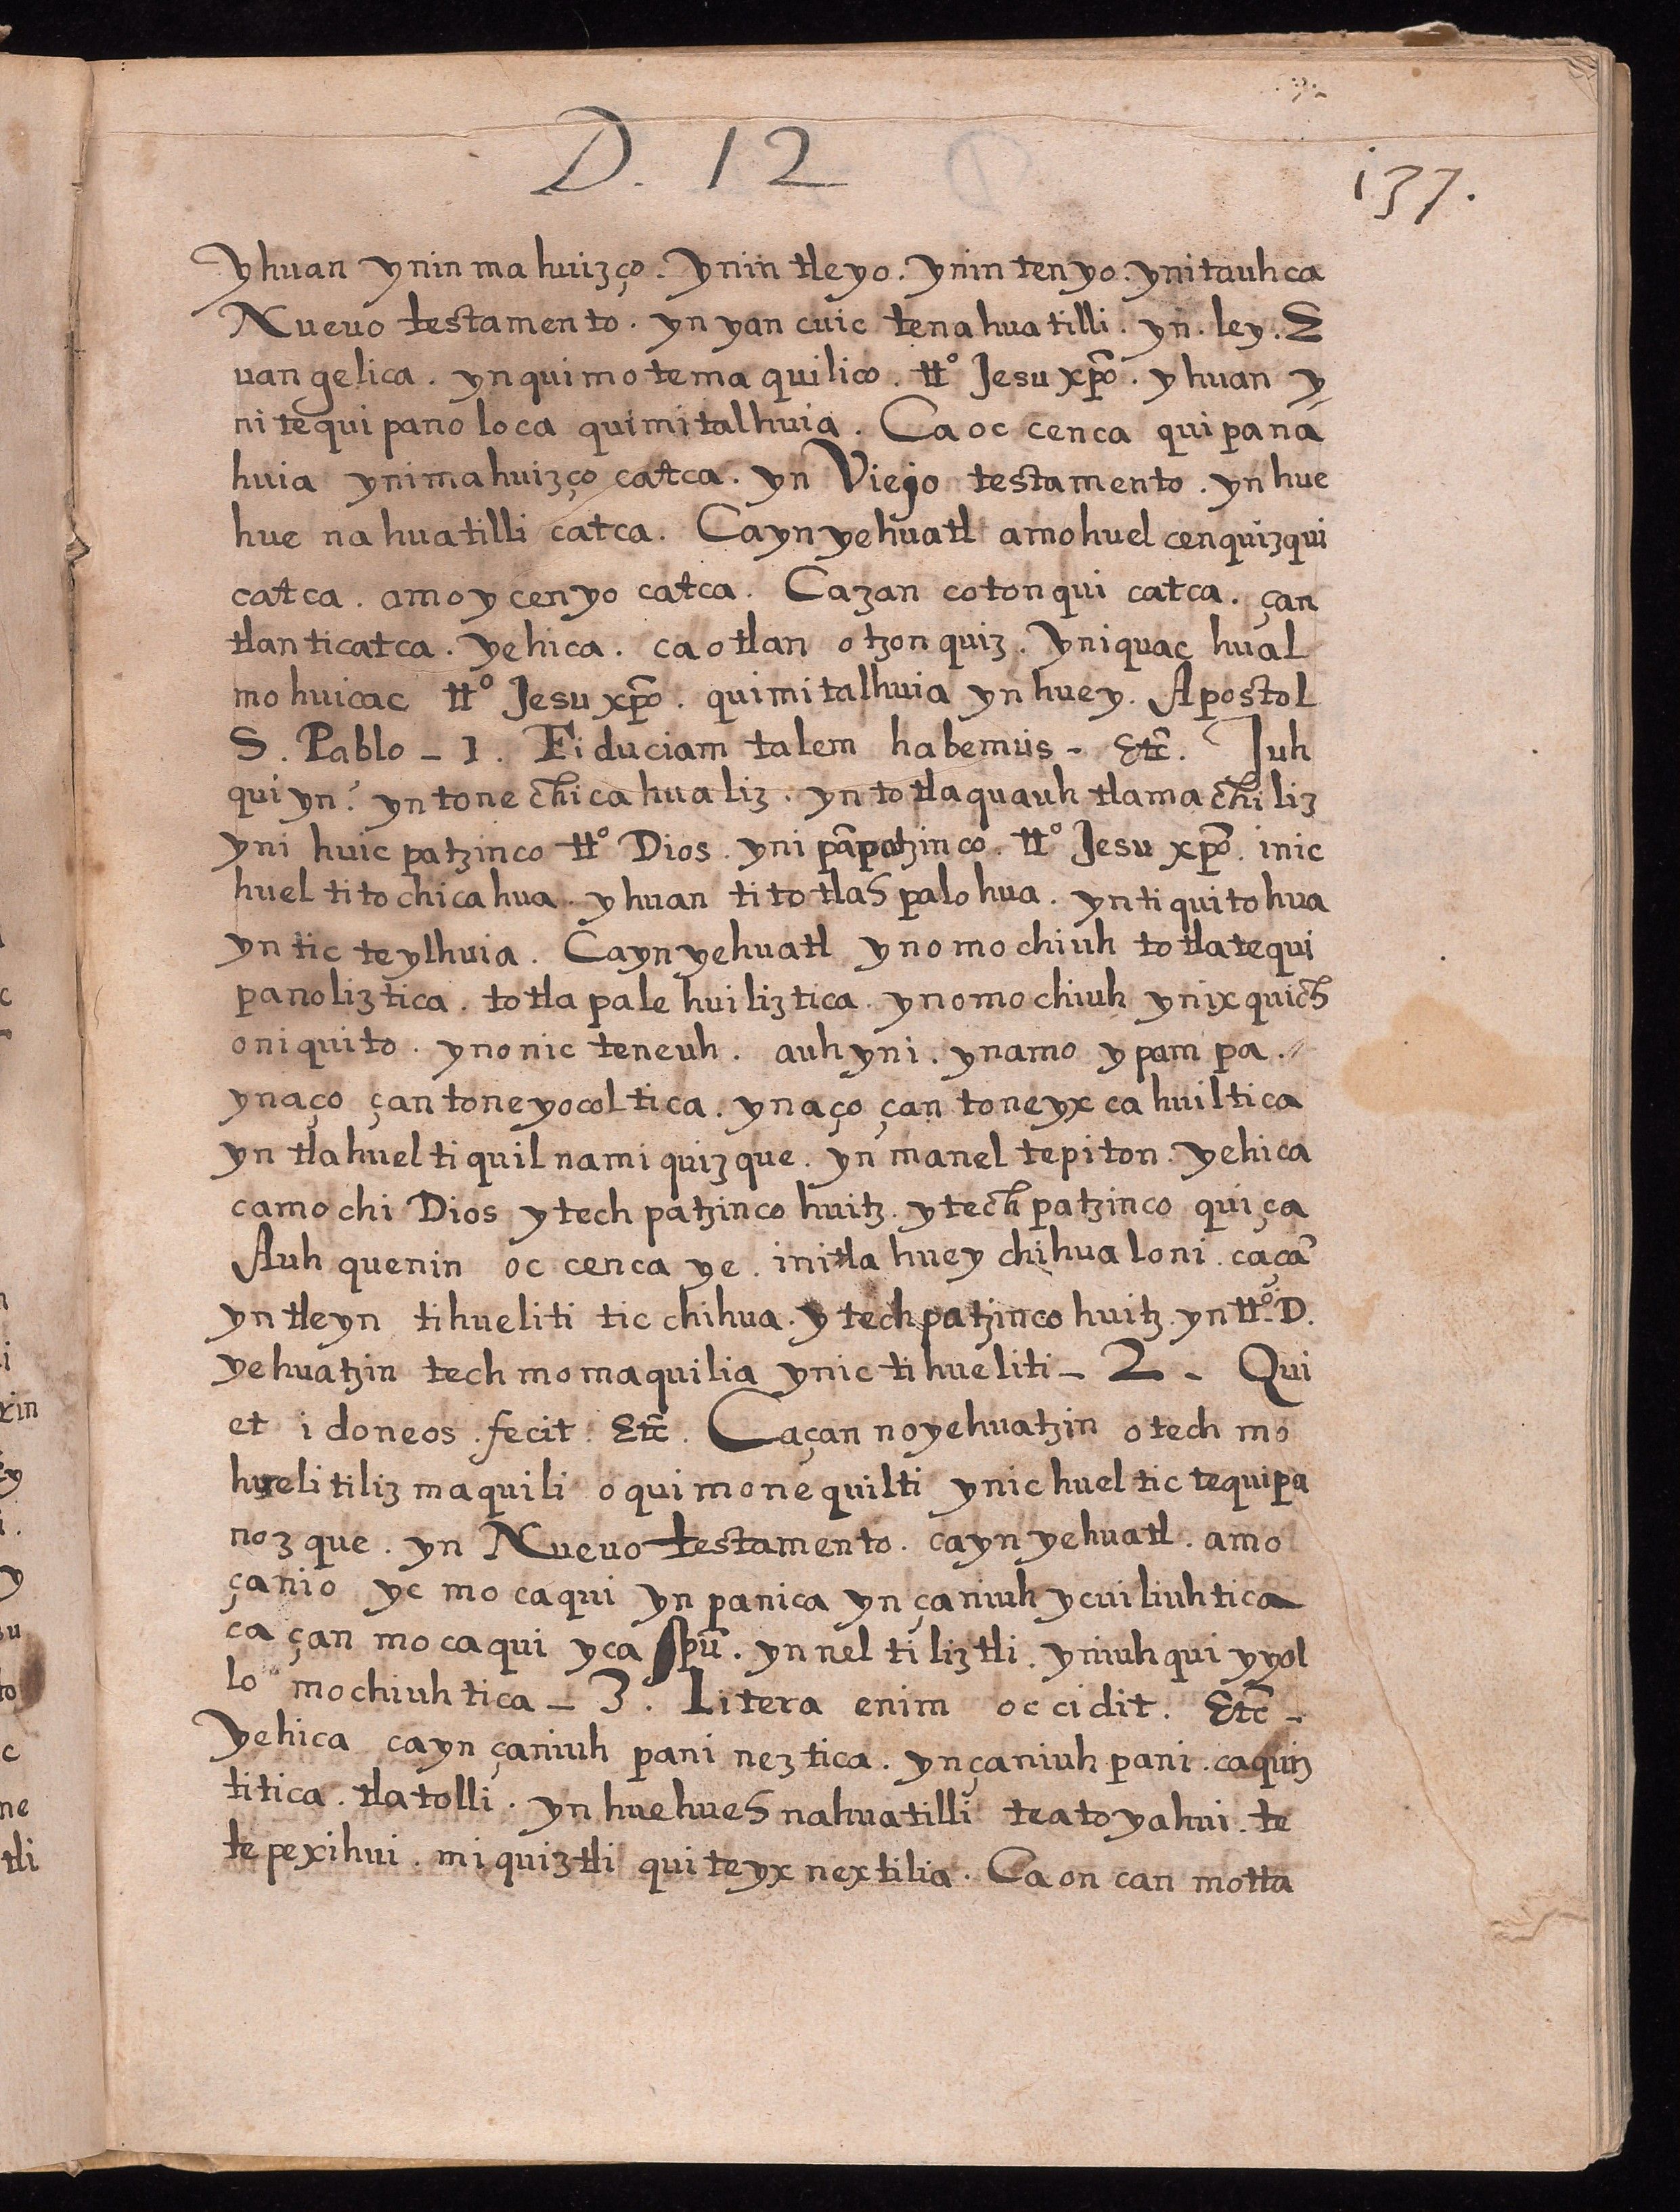 D. 12
137.
yhuan ynin mahuizço. ynin tleyo. ynin tenyo. ynitauhca
Nueuo testamento. yn yan cuic tenahuatilli. yn. ley. E
uangelica. ynquimotemaquilico. tt.º Jesu xp̃o. yhuan y
nitequipanoloca quimitalhuia. Ca oc cenca quipana
huia ynimahuizço catca. yn Viejo testamento. yn hue
hue nahuatilli catca. Cayn yehuatl amohuel cenquizqui
catca. amo ycenyo catca. Cazan cotonqui catca. çan
tlanticatca. yehica. ca otlan otzonquiz. yniquac hual
mohuicac tt.º Jesu xp̃o. quimitalhuia yn huey. Apostol
S. Pablo - 1. Fiduciam talem habemus - Etc̃. Juh
qui yn? yn tonechicahualiz. yn totlaquauhtlamachiliz
yni huicpatzinco tt.º Dios. yni pãpatzinco. tt.º Jesu xp̃o. inic
huel titochicahua. yhuan titotlahpalohua. yn tiquitohua
yn tic teylhuia. Cayn yehuatl ynomochiuh totlatequi
panoliztica. totlapalehuiliztica. ynomochiuh ynixquich
oniquito. ynonic teneuh. auh yni. ynamo ypampa.
ynaço çan toneyocoltica. ynaço çan toneyxcahuiltica
yn tlahuel tiquilnamiquizque. yn manel tepiton. yehica
camochi Dios ytechpatzinco huitz. ytechpatzinco quiça
Auh quenin oc cenca ye. initla huey chihualoni. caçã
yn tleyn tihueliti tic chihua. ytechpatzinco huitz. yn tt.º D.
yehuatzin techmomaquilia ynic tihueliti - 2 - Qui
et idoneos. fecit. Etc̃. Caçan noyehuatzin otech mo
huelitilizmaquili oquimonequilti ynic huel tic tequipa
nozque. yn Nueuo testamento. cayn yehuatl. amo
çanio yc mocaqui yn panica yn çaniuh ycuiliuhtica
ca çan mocaqui yca spũ. yn neltiliztli. yniuhqui yyol
lo mochiuhtica - 3. Litera enim occidit. Etc̃ -
yehica cayn çaniuh pani neztica. yn çaniuh pani. caquiz
titica. tlatolli. yn huehueh nahuatilli teatoyahui. te
tepexihui. miquiztli quiteyxnextilia. Ca on can motta